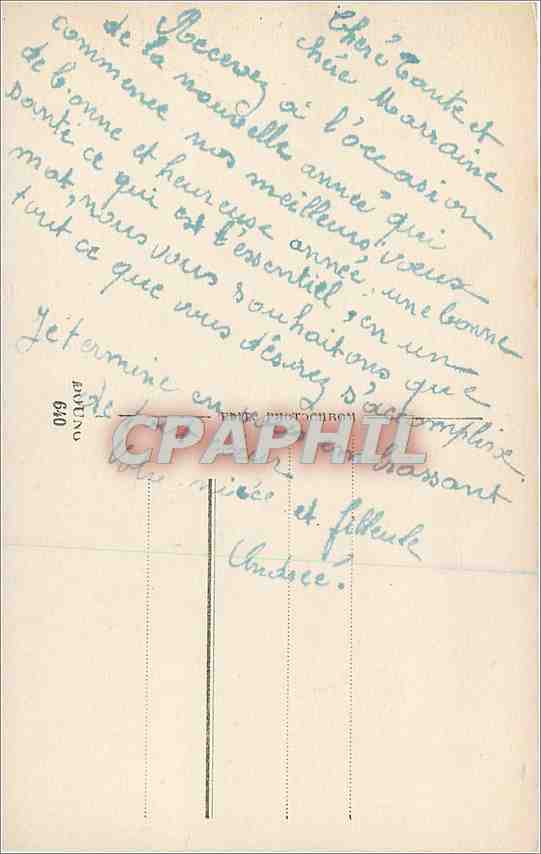 Chère Tante et
chère Marraine
Recevez à l'occasion
de la nouvelle année qui
commence nos meilleurs vœux
de bonne et heureuse année, une bonne
santé ce qui est l'essentiel, en un
mot, nous vous souhaitons que
tout ce que vous désirez s'accomplisse.
Je termine en vous embrassant
de tout cœur
Votre nièce et filleule
Andrée.
640
CPAPHIL